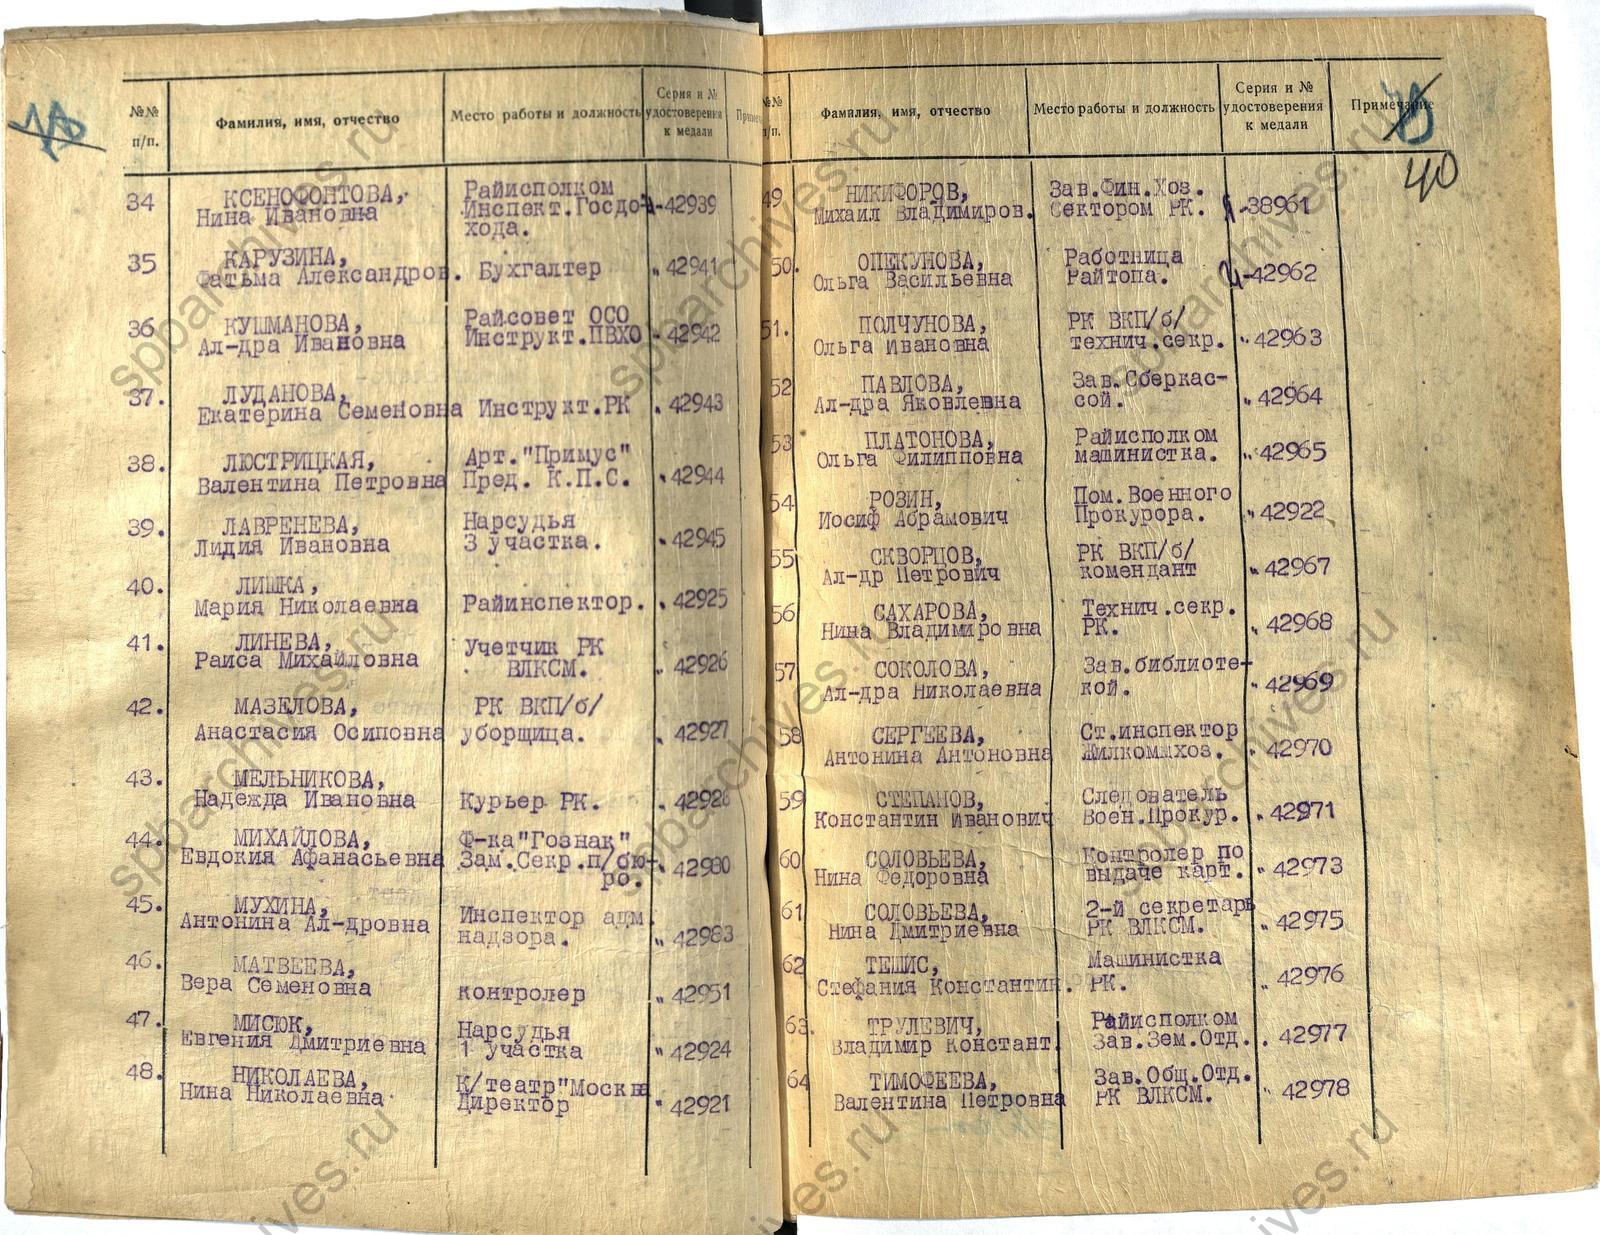 №№ п/п.
Фамилия, имя, отчество
Место работы и должность
Серия и № удостоверения к медали
34 КСЕНОФОНТОВА, Райисполком
Нина Ивановна Инспект.Госдо- -42939
хода.
35 КАРУЗИНА,
Фатьма Александров. Бухгалтер " 42941
36 КУШМАНОВА, Райсовет ОСО
Ал-дра Ивановна Инструкт.ПВХО " 42942
37. ЛУДАНОВА,
Екатерина Семеновна Инструкт.РК " 42943
38. ЛЮСТРИЦКАЯ, Арт."Примус"
Валентина Петровна Пред. К.П.С. " 42944
39. ЛАВРЕНЕВА, Нарсудья
Лидия Ивановна 3 участка. " 42945
40. ЛИШКА,
Мария Николаевна Райинспектор. " 42925
41. ЛИНЕВА, Учетчик РК
Раиса Михайловна ВЛКСМ. " 42926
42. МАЗЕЛОВА, РК ВКП/б/
Анастасия Осиповна уборщица. " 42927
43. МЕЛЬНИКОВА,
Надежда Ивановна Курьер РК. " 42928
44. МИХАЙЛОВА, Ф-ка"Гознак"
Евдокия Афанасьевна Зам.Секр.п/бю- "
ро.
45. МУХИНА, Инспектор адм.
Антонина Ал-дровна надзора. "
46. МАТВЕЕВА,
Вера Семеновна контролер " 42951
47. МИСЮК, Нарсудья
Евгения Дмитриевна 1 участка " 42924
48. НИКОЛАЕВА, К/театр"Москва
Нина Николаевна Директор " 42921
№№ п/п.
Фамилия, имя, отчество
Место работы и должность
Серия и № удостоверения к медали
Примечание
40
49. НИКИФОРОВ, Зав.Фин.Хоз.
Михаил Владимиров. Сектором РК. -38961
50. ОПЕКУНОВА, Работница
Ольга Васильевна Райтопа. -42962
51. ПОЛЧУНОВА, РК ВКП/б/
Ольга Ивановна технич.секр. " 42963
52 ПАВЛОВА, Зав.Сберкас-
Ал-дра Яковлевна сой. " 42964
53 ПЛАТОНОВА, Райисполком
Ольга Филипповна машинистка. " 42965
54 РОЗИН, Пом.Военного
Иосиф Абрамович Прокурора. " 42922
55 СКВОРЦОВ, РК ВКП/б/
Ал-др Петрович комендант " 42967
56 САХАРОВА, Технич.секр.
Нина Владимировна РК. " 42968
57 СОКОЛОВА, Зав.библиоте-
Ал-дра Николаевна кой. " 42969
58 СЕРГЕЕВА, Ст.инспектор
Антонина Антоновна " 42970
59 СТЕПАНОВ, Следователь
Константин Иванович Воен.Прокур. " 42971
60 СОЛОВЬЕВА, Контролер по
Нина Федоровна выдаче карт. " 42973
61 СОЛОВЬЕВА, 2-й секретарь
Нина Дмитриевна РК ВЛКСМ. " 42975
62 ТЕШИС, Машинистка
Стефания Константин. РК. " 42976
63. ТРУЛЕВИЧ, Райисполком
Владимир Констант. Зав.Зем.Отд. " 42977
64 ТИМОФЕЕВА, Зав.Общ.Отд.
Валентина Петровна РК ВЛКСМ. " 42978
spbarchives.ru